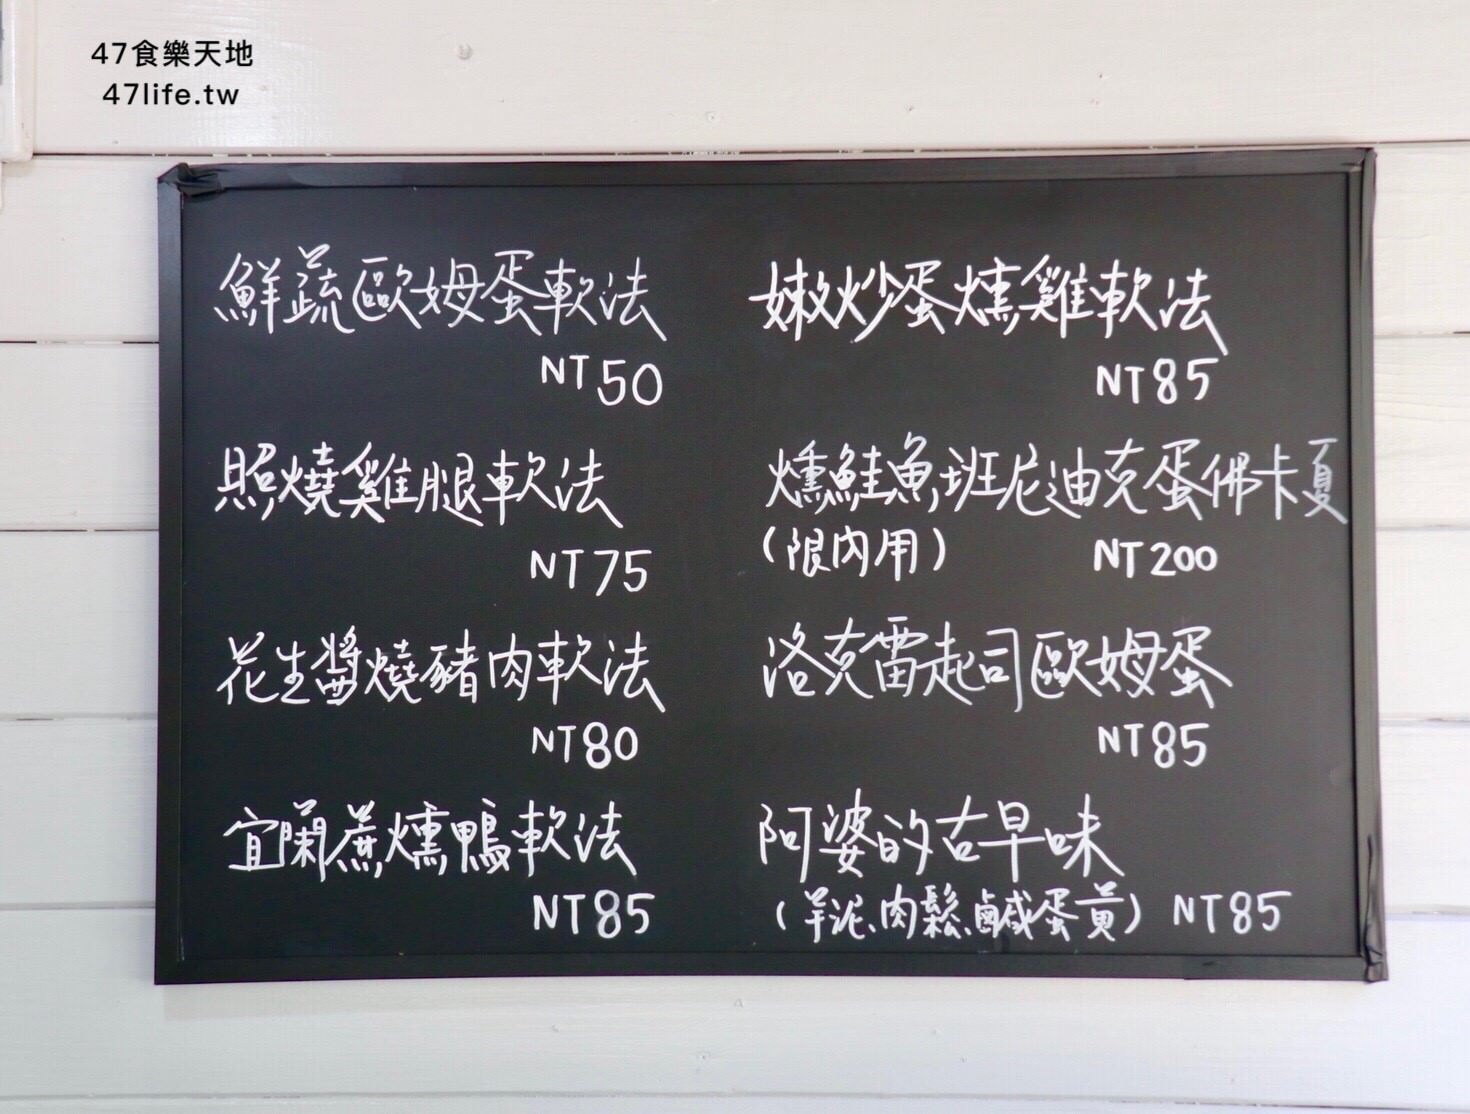 47食樂天地
47life.tw
鮮蔬歐姆蛋軟法
NT50
照燒雞腿軟法
NT75
花生醬燒豬肉軟法
NT80
宜蘭蔗燻鴨軟法
NT85
嫩炒蛋燻雞軟法
NT85
燻鮭魚班尼迪克蛋佛卡夏
(限內用) NT200
洛克雷起司歐姆蛋
NT85
阿婆的古早味
(芋泥、肉鬆、鹹蛋黃) NT85